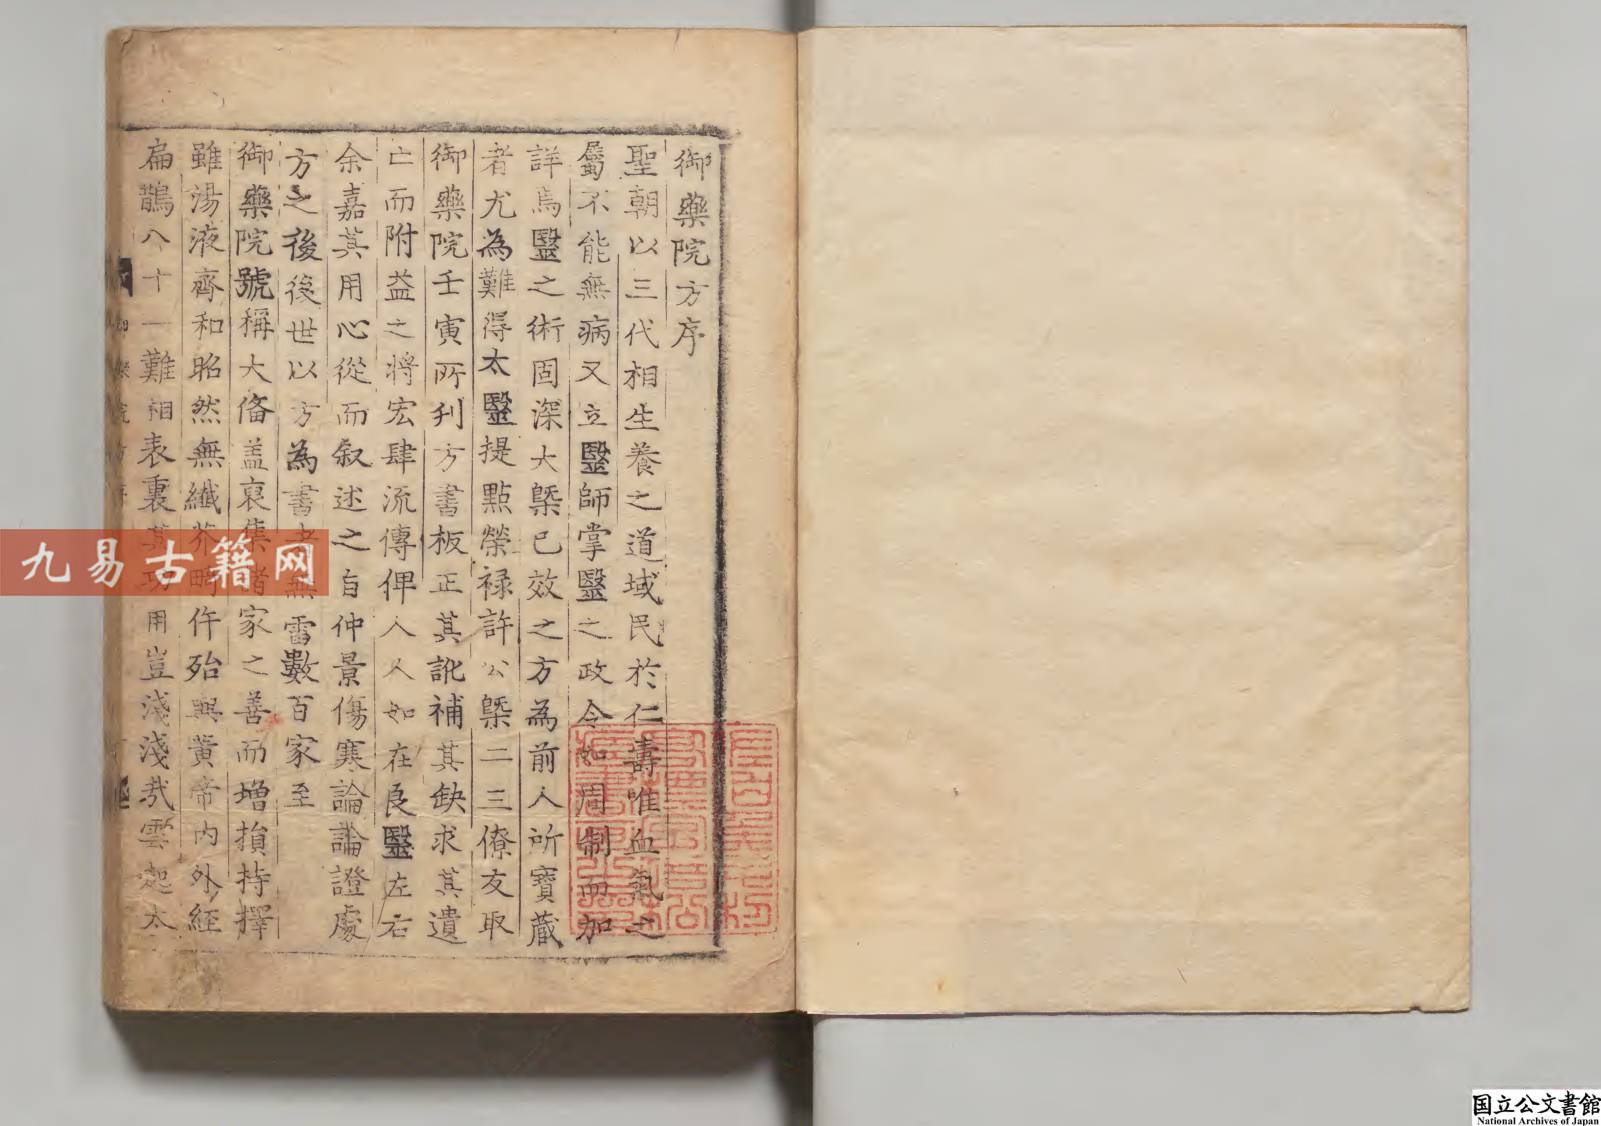 御藥院方序
聖朝以三代相生養之道域民於仁壽唯血氣之
屬不能無病又立醫師掌醫之政令如周制而加
詳焉醫之術固深大槩已效之方為前人所寶蔵
者尤為難得太醫提點榮祿許公槩二三僚友取
御藥院壬寅所刋方書板正其訛補其缺求其遺
亡而附益之將宏肆流傳俾人人如在良醫左右
余嘉其用心從而叙述之自仲景傷寒論論證處
方之後後世以方為書者無雷數百家至
御藥院號稱大俻盖裒集諸家之善而增損持擇
雖湯液齊和昭然無纖芥畸仵殆與黃帝內外經
扁鵲八十一難相表裏其功用豈淺淺㢤雲起太
九易古籍网
国立公文書館
National Archives of Japan